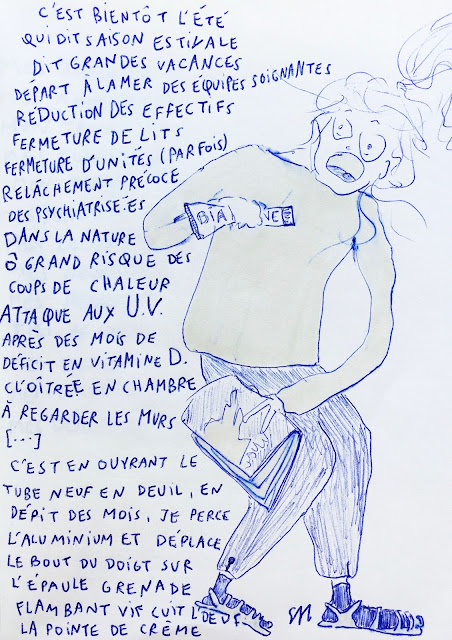 C'EST BIENTÔT L'ÉTÉ
QUI DIT SAISON ESTIVALE
DIT GRANDES VACANCES
DEPART À LA MER DES ÉQUIPES SOIGNANTES
REDUCTION DES EFFECTIFS
FERMETURE DE LITS
FERMETURE D'UNITÉS (PARFOIS)
RELÂCHEMENT PRÉCOCE
DES PSYCHIATRISÉ.ES
DANS LA NATURE
Ô GRAND RISQUE DES
COUPS DE CHALEUR
ATTAQUE AUX U.V.
APRÈS DES MOIS DE
DÉFICIT EN VITAMINE D.
CLOÎTRÉE EN CHAMBRE
À REGARDER LES MURS
[...]
C'EST EN OUVRANT LE
TUBE NEUF EN DEUIL, EN
DÉPIT DES MOIS, JE PERCE
L'ALUMINIUM ET DÉPLACE
LE BOUT DU DOIGT SUR
L'ÉPAULE GRENADE
FLAMBANT VIF CUIT L'OEUF.
LA POINTE DE CRÈME
BIA
NE
SM